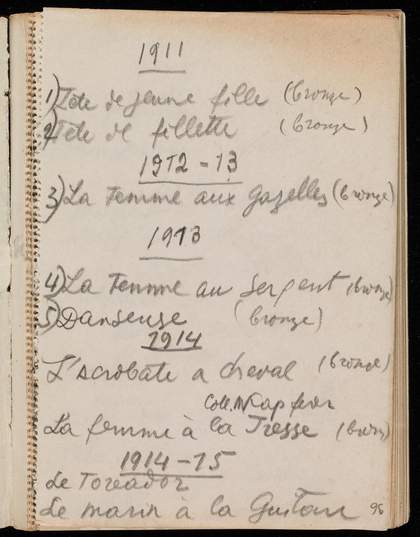 1911
1) Tete de jeune fille (bronze)
2) Tete de fillette (bronze)
1912-13
3) La Femme aux gazelles (bronze)
1913
4) La Femme au Serpent (bronze)
5) Danseuse (bronze)
1914
L'acrobate a cheval (bronze)
Coll. M
La femme à la Tresse (bronze)
1914-15
Le Toreador
Le marin à la Guitare 96